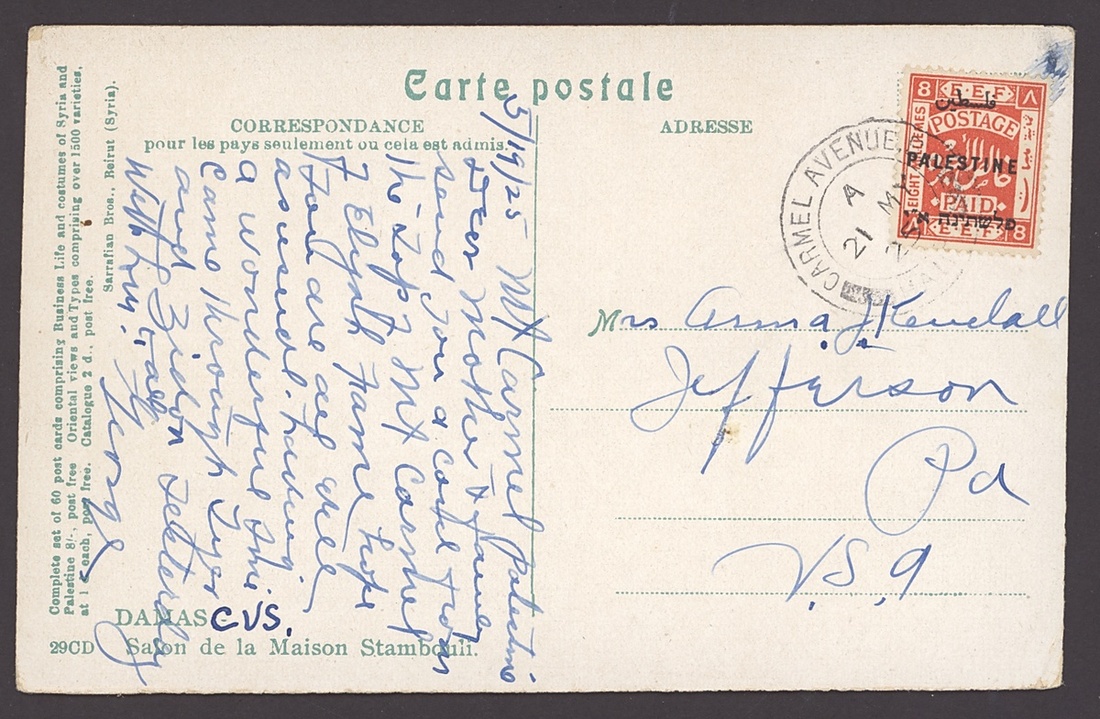 Carte postale
CORRESPONDANCE
pour les pays seulement ou cela est admis.
ADRESSE
Complete set of 60 post cards comprising Business Life and costumes of Syria and
Palestine 8/-, post free Oriental views and Types comprising over 1500 varieties,
at 1 d. each, post free. Catalogue 2 d., post free.
Sarrafian Bros., Beirut (Syria).
5/19/25 Mt Carmel Palestine
Dear Mother & Family
send you a card from
the top of Mt Carmel
of Elijah Fame hope
you are all well
as usual. having
a wonderful time
came through Tyre
and Zidon yesterday
With Love to all
George
DAMAS CVS.
29CD Salon de la Maison Stambouli.
8 E.E.F. ٨
فلسطين
POSTAGE
PALESTINE
PAID
פלשתינה א״י
E.E.F. 8
CARMEL AVENUE
A
21 MY
25
Mrs Anna J. Kendall
Jefferson
Pa
U.S.A